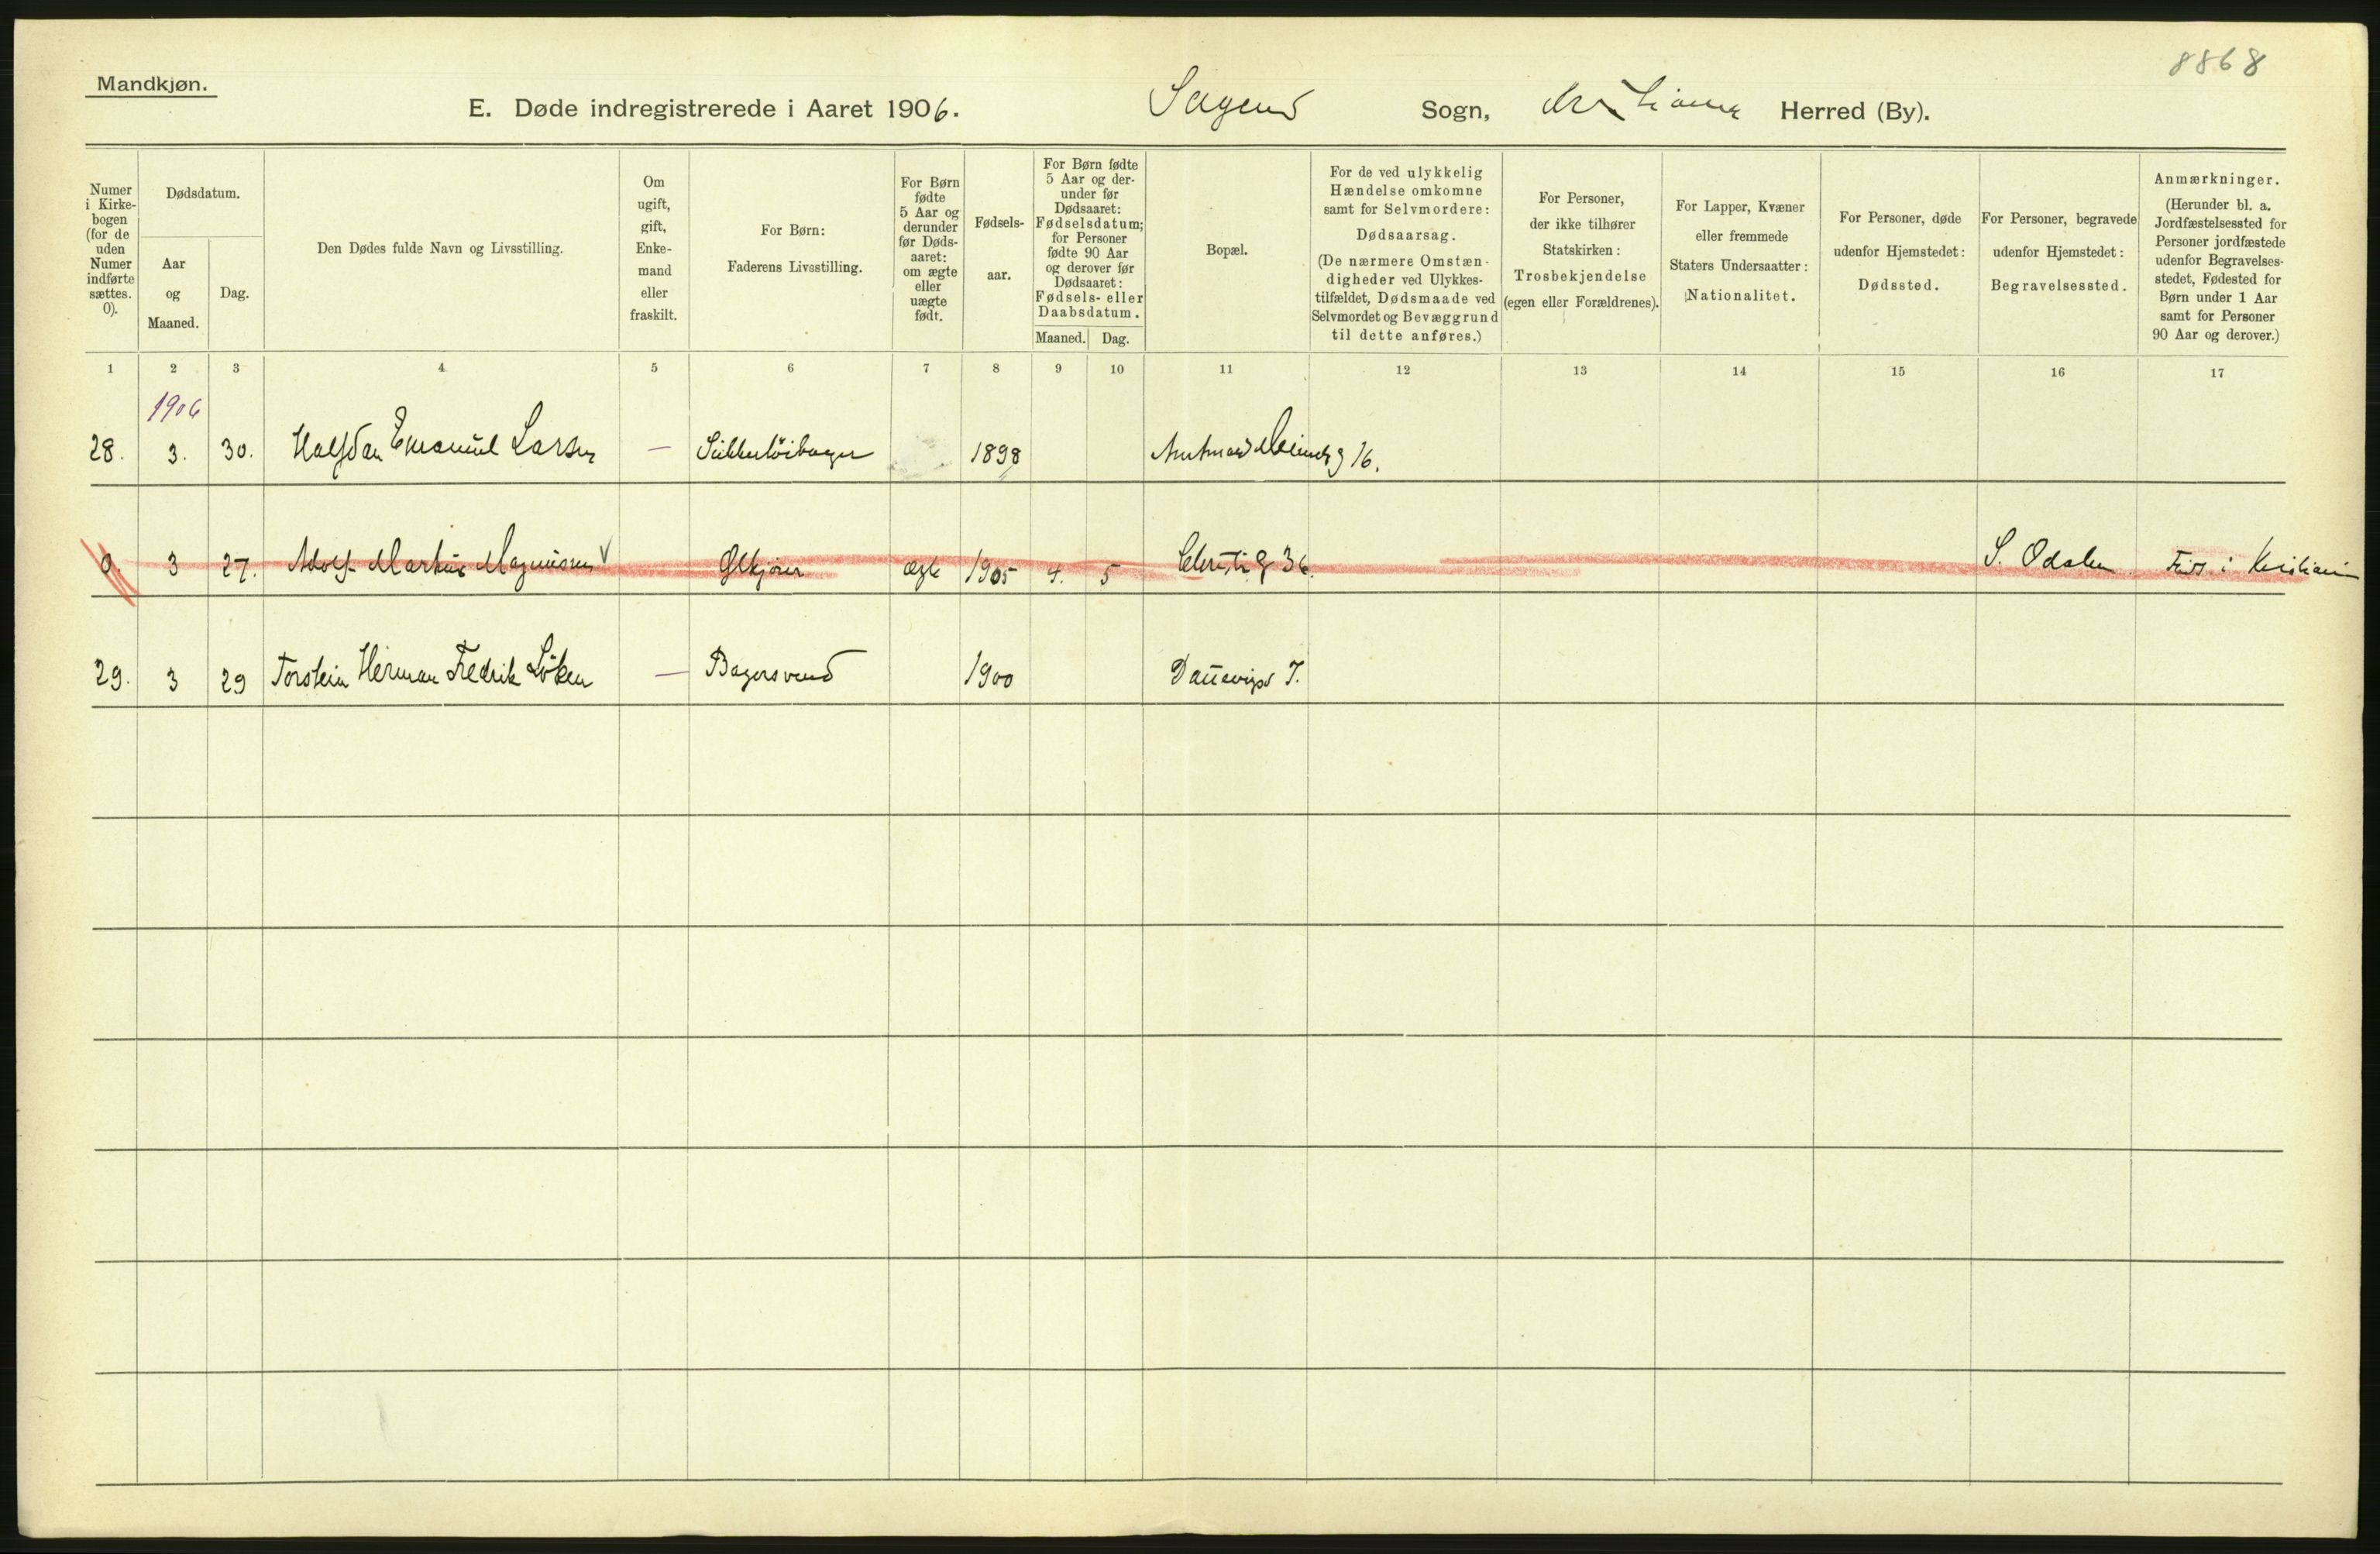 8868
Mandkjøn.
E. Døde indregistrerede i Aaret 1906. Sagene Sogn, Kristiania Herred (By).
Numer i Kirke-bogen (for de uden Numer indførte sættes. 0).
Dødsdatum.
Aar og Maaned.
Dag.
Den Dødes fulde Navn og Livsstilling.
Om ugift, gift, Enke-mand eller fraskilt.
For Børn: Faderens Livsstilling.
For Børn fødte 5 Aar og derunder før Døds-aaret: om ægte eller uægte født.
Fødsels-aar.
For Børn fødte 5 Aar og der-under før Dødsaaret: Fødselsdatum; for Personer fødte 90 Aar og derover før Dødsaaret: Fødsels- eller Daabsdatum.
Maaned. Dag.
Bopæl.
For de ved ulykkelig Hændelse omkomne samt for Selvmordere: Dødsaarsag. (De nærmere Omstæn-digheder ved Ulykkes-tilfældet, Dødsmaade ved Selvmordet og Bevæggrund til dette anføres.)
For Personer, der ikke tilhører Statskirken: Trosbekjendelse (egen eller Forældrenes).
For Lapper, Kvæner eller fremmede Staters Undersaatter: Nationalitet.
For Personer, døde udenfor Hjemstedet: Dødssted.
For Personer, begravede udenfor Hjemstedet: Begravelsessted.
Anmærkninger. (Herunder bl. a. Jordfæstelsessted for Personer jordfæstede udenfor Begravelses-stedet, Fødested for Børn under 1 Aar samt for Personer 90 Aar og derover.)
1 2 3 4 5 6 7 8 9 10 11 12 13 14 15 16 17
1906
28. 3. 30. Halfdan Emanuel Larsen — 1898 16.
0. 3 27. Adolf Markus Magnusen Ølkjører ægte 1905 4. 5 Christi g 36. S. Odalen Født i Kristiania
29. 3 29 Torstein Herman Fredrik Löken — Bagersvend 1900 7.